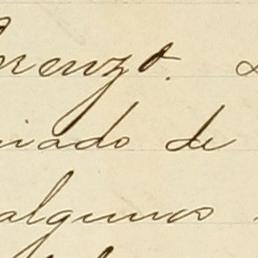 renzo.
iado de
algunos